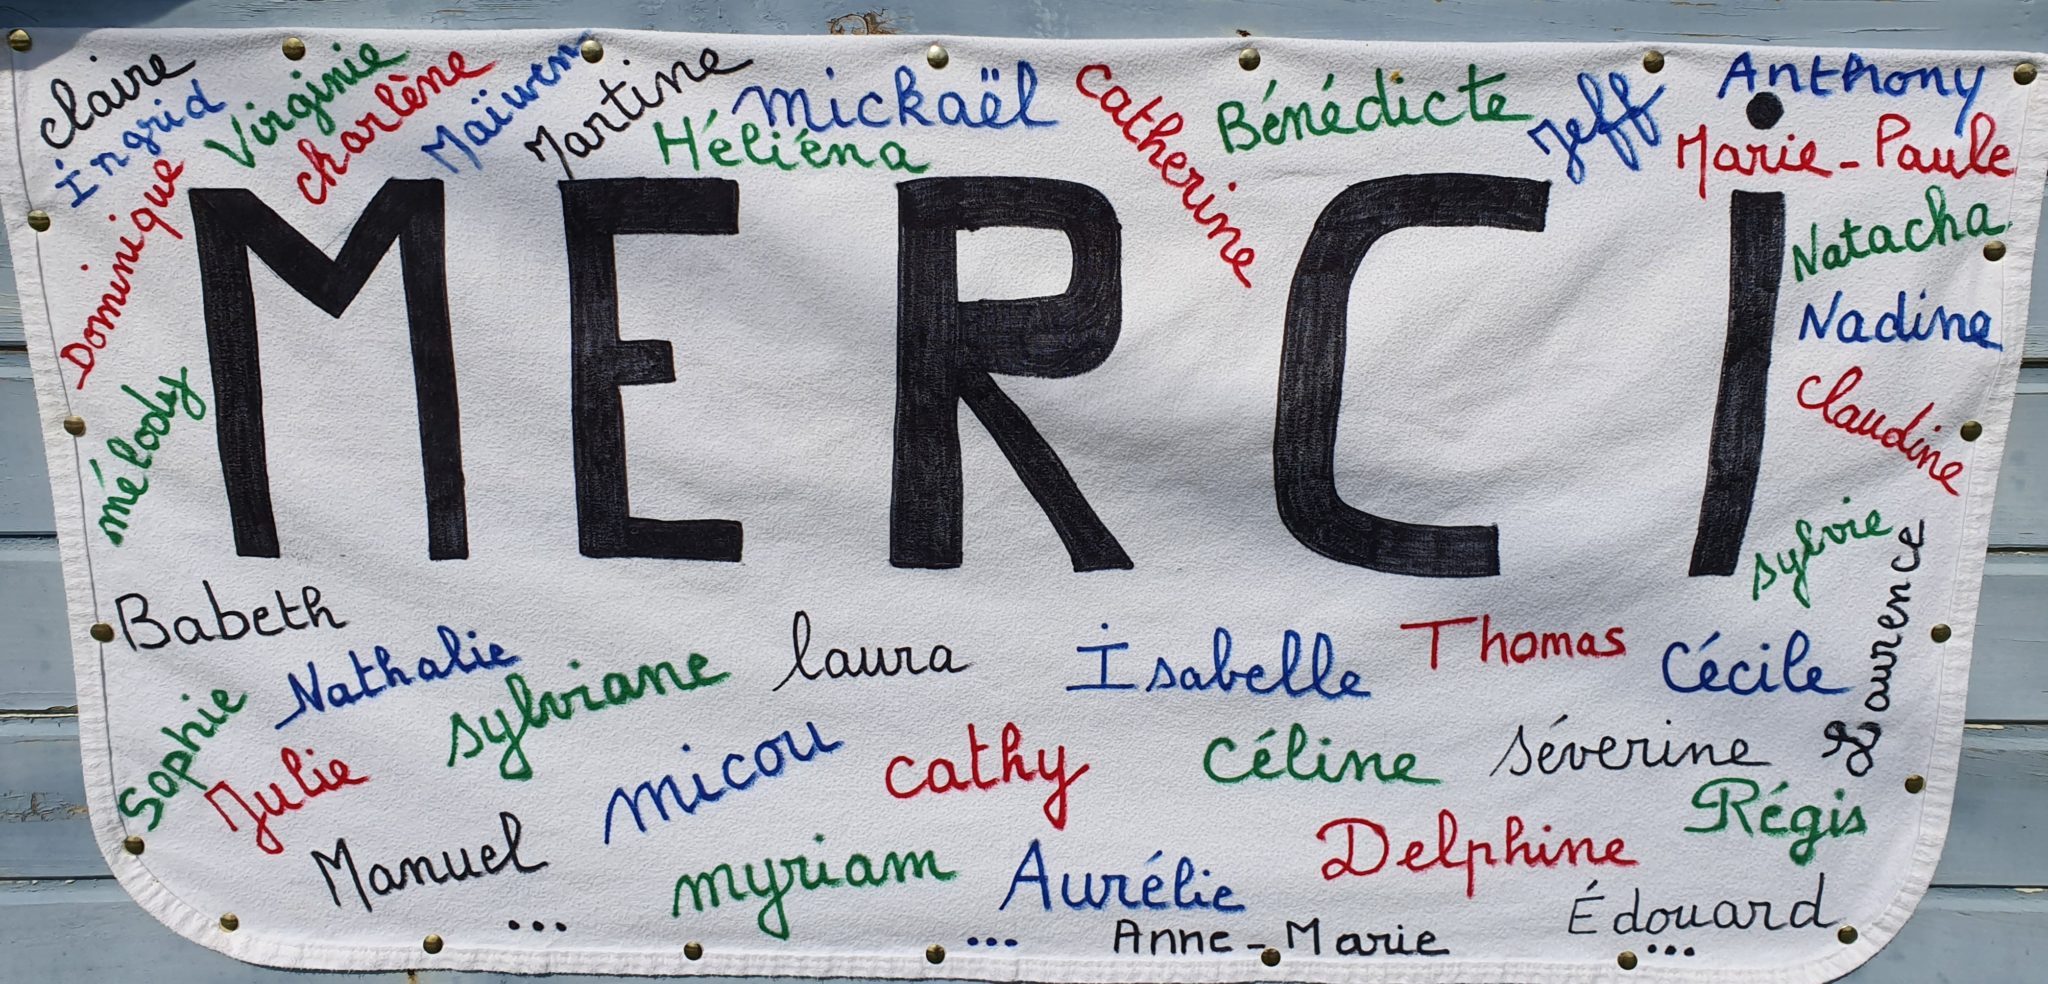 Claire
Ingrid
Virginie
Charlène
Maïwen
Martine
Héliéna
mickaël
Catherine
Bénédicte
Jeff
Anthony
Marie-Paule
Dominique
MERCI
Natacha
Nadine
Claudine
mélody
sylvie
Laurence
Babeth
Nathalie
sylviane
laura
Isabelle
Thomas
Cécile
Sophie
Julie
micou
cathy
Céline
séverine
Régis
Manuel
myriam
Aurélie
Delphine
Édouard
...
...
Anne-Marie
...